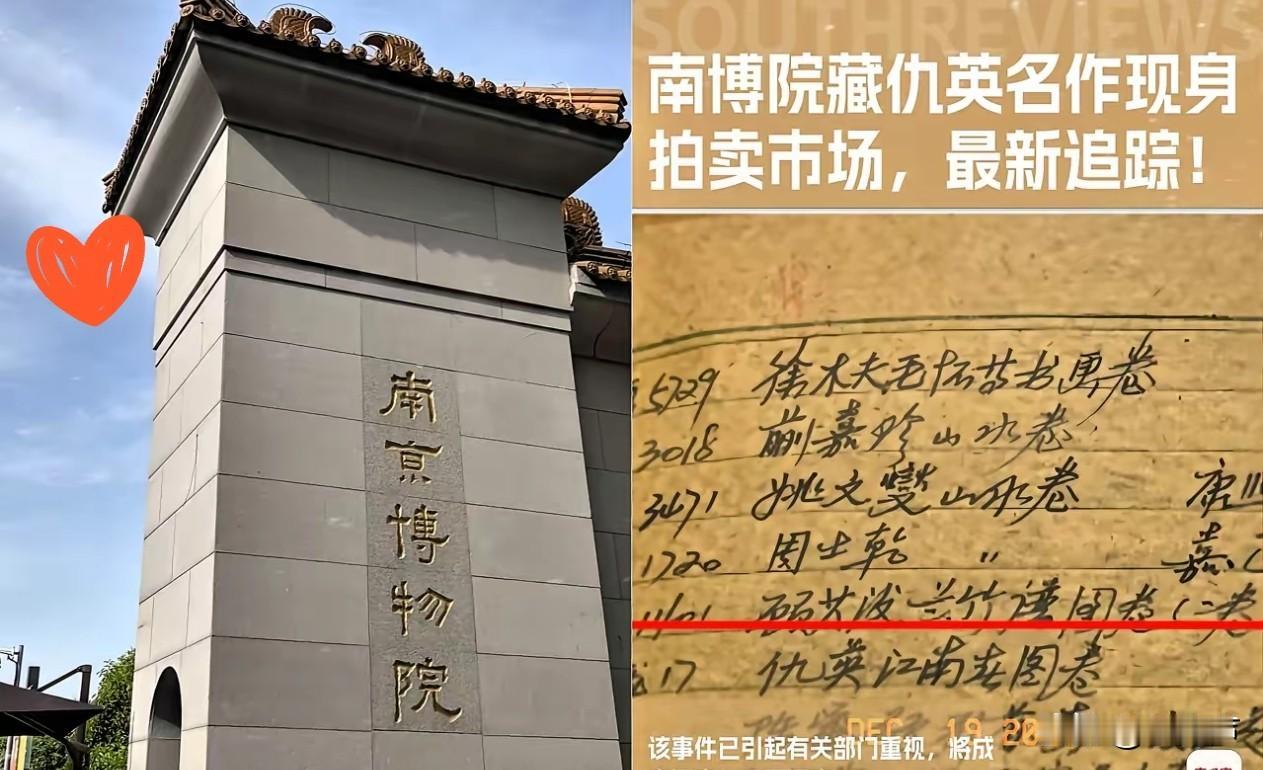 南京博物院
SOUTHREVIEWS
南博院藏仇英名作现身
拍卖市场，最新追踪！
5729 徐木夫毛怀苔书画卷
3018 蒯嘉珍山水卷
3471 姚文燮山水卷
1720 周士乾 〃 嘉
兰竹谱图卷（二卷
17 仇英江南春图卷
DEC 19 20
该事件已引起有关部门重视，将成